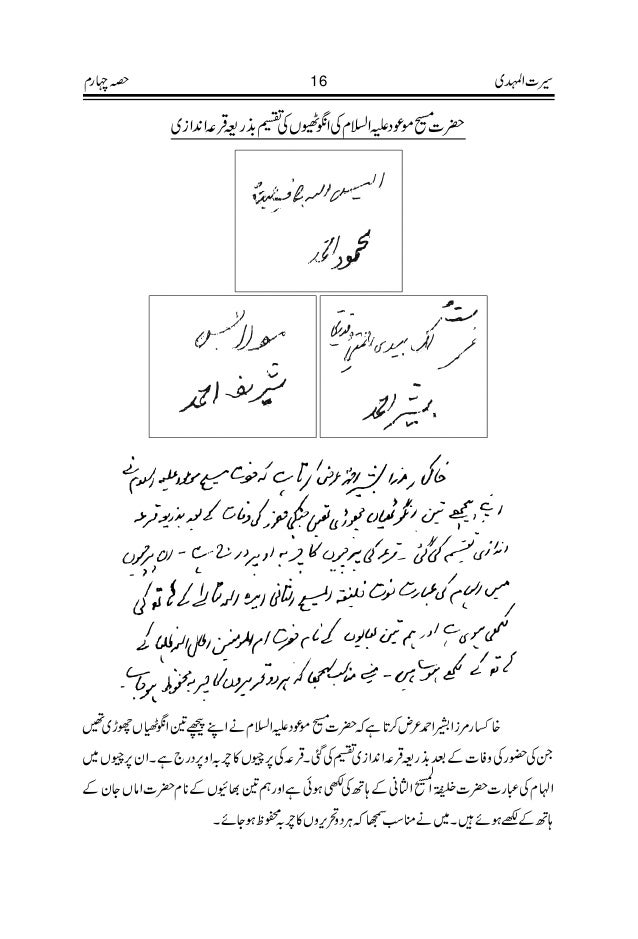 سیرت المہدی 16 حصہ چہارم
حضرت مسیح موعود علیہ السلام کی انگوٹھیوں کی تقسیم بذریعہ قرعہ اندازی
الیس اللہ بکاف عبدہ
محمود احمد
مولا بس
شریف احمد
بشیر احمد
خاکسار مرزا بشیر احمد عرض کرتا ہے کہ حضرت مسیح موعود علیہ السلام نے
اپنے پیچھے تین انگوٹھیاں چھوڑی تھیں جنکی حضور کی وفات کے بعد بذریعہ قرعہ
اندازی تقسیم کی گئی ۔ قرعہ کی پرچیوں کا چربہ اوپر درج ہے ۔ ان پرچیوں
میں الہام کی عبارت حضرت خلیفۃ المسیح الثانی ایدہ اللہ تعالیٰ کے ہاتھ کی
لکھی ہوئی ہے اور ہم تین بھائیوں کے نام حضرت ام المومنین اطال اللہ ظلہا کے
ہاتھ کے لکھے ہوئے ہیں ۔ میں نے مناسب سمجھا کہ ہر دو تحریروں کا چربہ محفوظ ہو جائے ۔
خاکسار مرزا بشیر احمد عرض کرتا ہے کہ حضرت مسیح موعود علیہ السلام نے اپنے پیچھے تین انگوٹھیاں چھوڑی تھیں
جن کی حضور کی وفات کے بعد بذریعہ قرعہ اندازی تقسیم کی گئی۔ قرعہ کی پرچیوں کا چربہ اوپر درج ہے۔ ان پرچیوں میں
الہام کی عبارت حضرت خلیفۃ المسیح الثانی کے ہاتھ کی لکھی ہوئی ہے اور ہم تین بھائیوں کے نام حضرت اماں جان کے
ہاتھ کے لکھے ہوئے ہیں۔ میں نے مناسب سمجھا کہ ہر دو تحریروں کا چربہ محفوظ ہو جائے۔